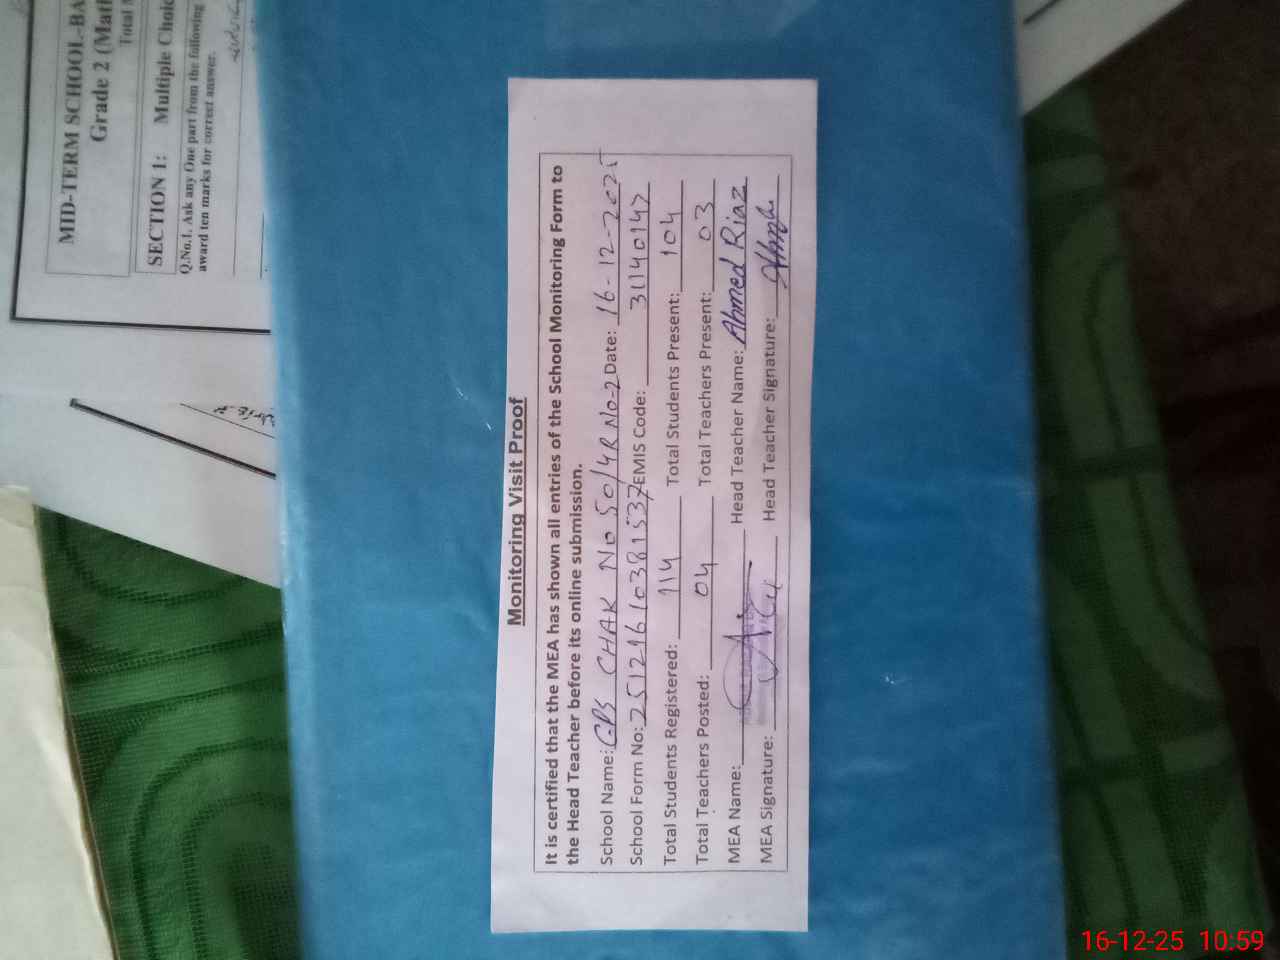 Monitoring Visit Proof
It is certified that the MEA has shown all entries of the School Monitoring Form to
the Head Teacher before its online submission.
School Name: GPS CHAK No 50/4R No-2 Date: 16-12-2025
School Form No: 25121610381537 EMIS Code: 31140147
Total Students Registered: 114 Total Students Present: 104
Total Teachers Posted: 04 Total Teachers Present: 03
MEA Name: Head Teacher Name: Ahmed Riaz
MEA Signature: Head Teacher Signature:
MID-TERM SCHOOL-BA
Grade 2 (Mat
Total
SECTION 1: Multiple Choic
Q.No.1. Ask any One part from the following
award ten marks for correct answer.
16-12-25 10:59